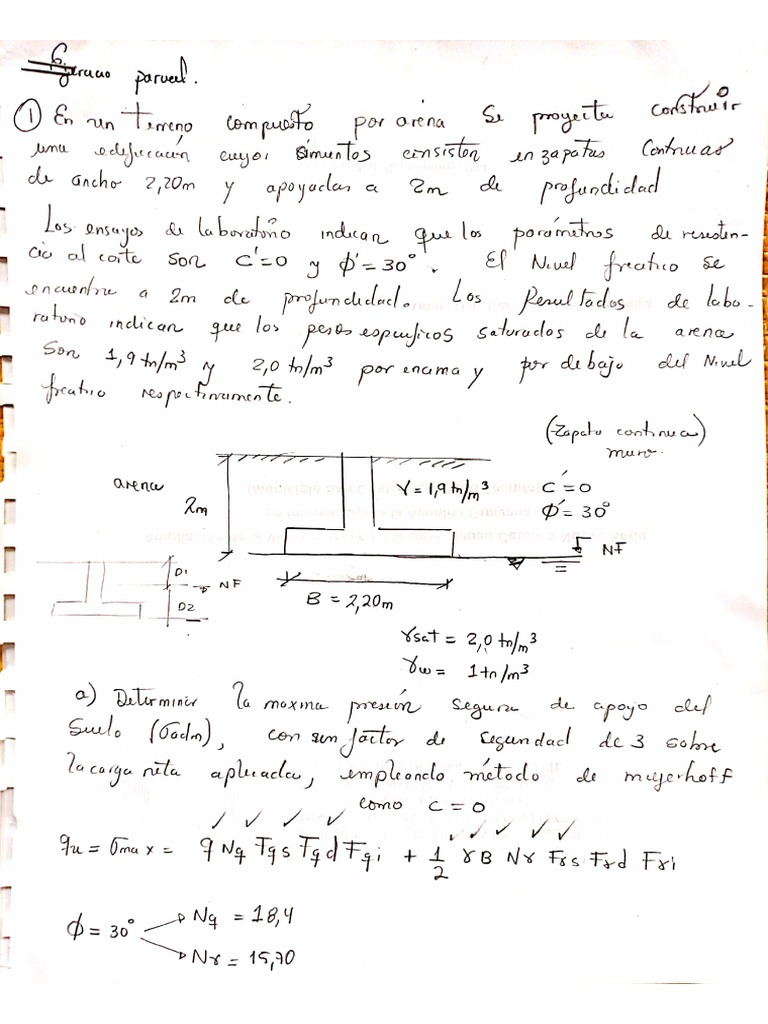 Ejercicio parcial.
① En un terreno compuesto por arena se proyecta construir
una edificación cuyos simientos consisten en zapatas continuas
de ancho 2,20m y apoyadas a 2m de profundidad
Los ensayos de laboratorio indican que los parámetros de resisten-
cia al corte son C'=0 y ϕ'=30°. El Nivel freatico se
encuentra a 2m de profundidad. Los Resultados de labo-
ratorio indican que los pesos especificos saturados de la arena
son 1,9 tn/m³ y 2,0 tn/m³ por encima y por debajo del Nivel
freatico respectivamente.
(Zapata continua)
muro.
arena
2m
γ = 1,9 tn/m³
C' = 0
ϕ' = 30°
NF
D1
NF
D2
B = 2,20m
γsat = 2,0 tn/m³
γw = 1 tn/m³
a) Determinar la maxima presión segura de apoyo del
suelo (σadm), con un factor de seguridad de 3 sobre
la carga neta aplicada, empleando método de muyerhoff
como C = 0
qu = σmax = q Nq Fqs Fqd Fqi + 1/2 γ B Nγ Fγs Fγd Fγi
ϕ = 30°
Nq = 18,4
Nγ = 15,70